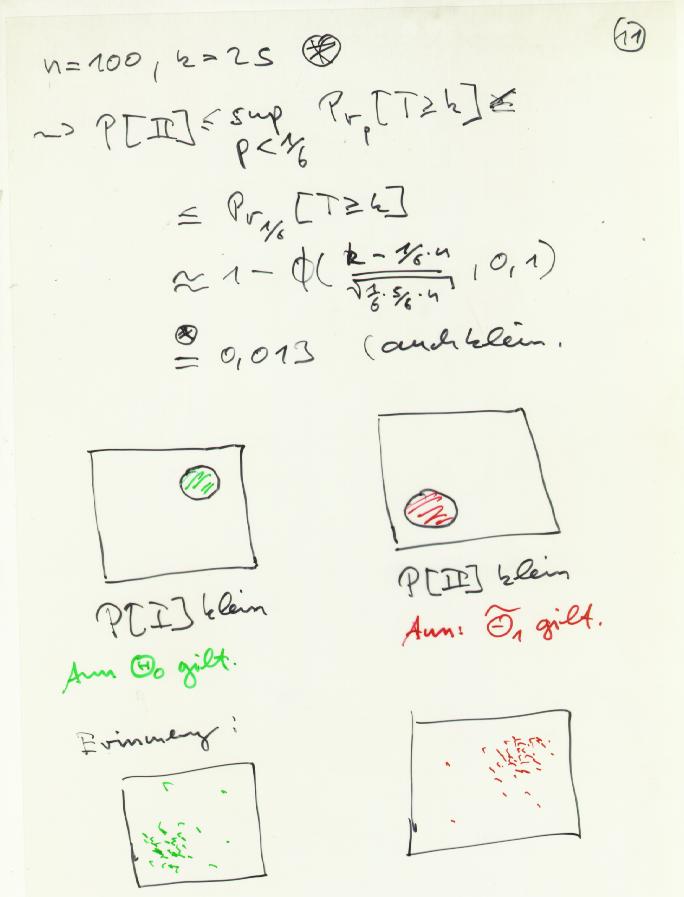 11
n=100, k=25 ⊛
⤳ P[II] ≤ sup_{p<1/6} Pr_p[T≥k] ≤
≤ Pr_{1/6}[T≥k]
≈ 1 - ϕ( (k - 1/6·n) / √(1/6·5/6·n) , 0, 1)
⊛
= 0,013 (auch klein.
P[I] klein
P[II] klein
Ann Θ₀ gilt.
Ann: Θ̃₁ gilt.
Erinnerung: